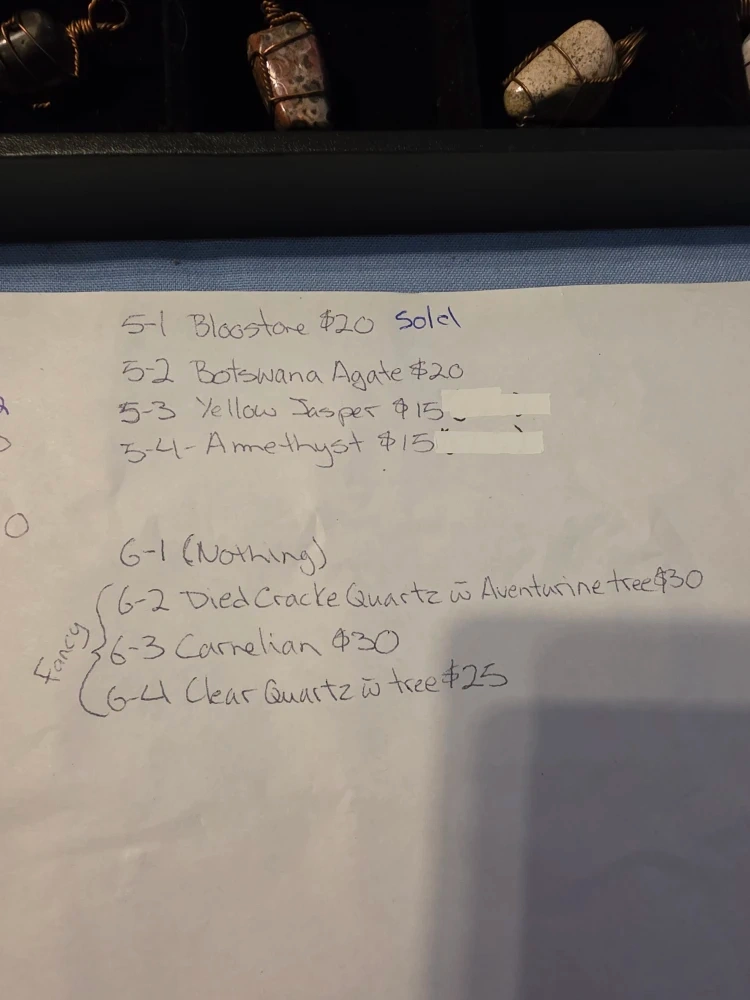 5-1 Bloostone $20 Sold
5-2 Botswana Agate $20
5-3 Yellow Jasper $15
5-4- Amethyst $15
6-1 (Nothing)
Fancy
6-2 Died Cracke Quartz w̄ Aventurine tree $30
6-3 Carnelian $30
6-4 Clear Quartz w̄ tree $25